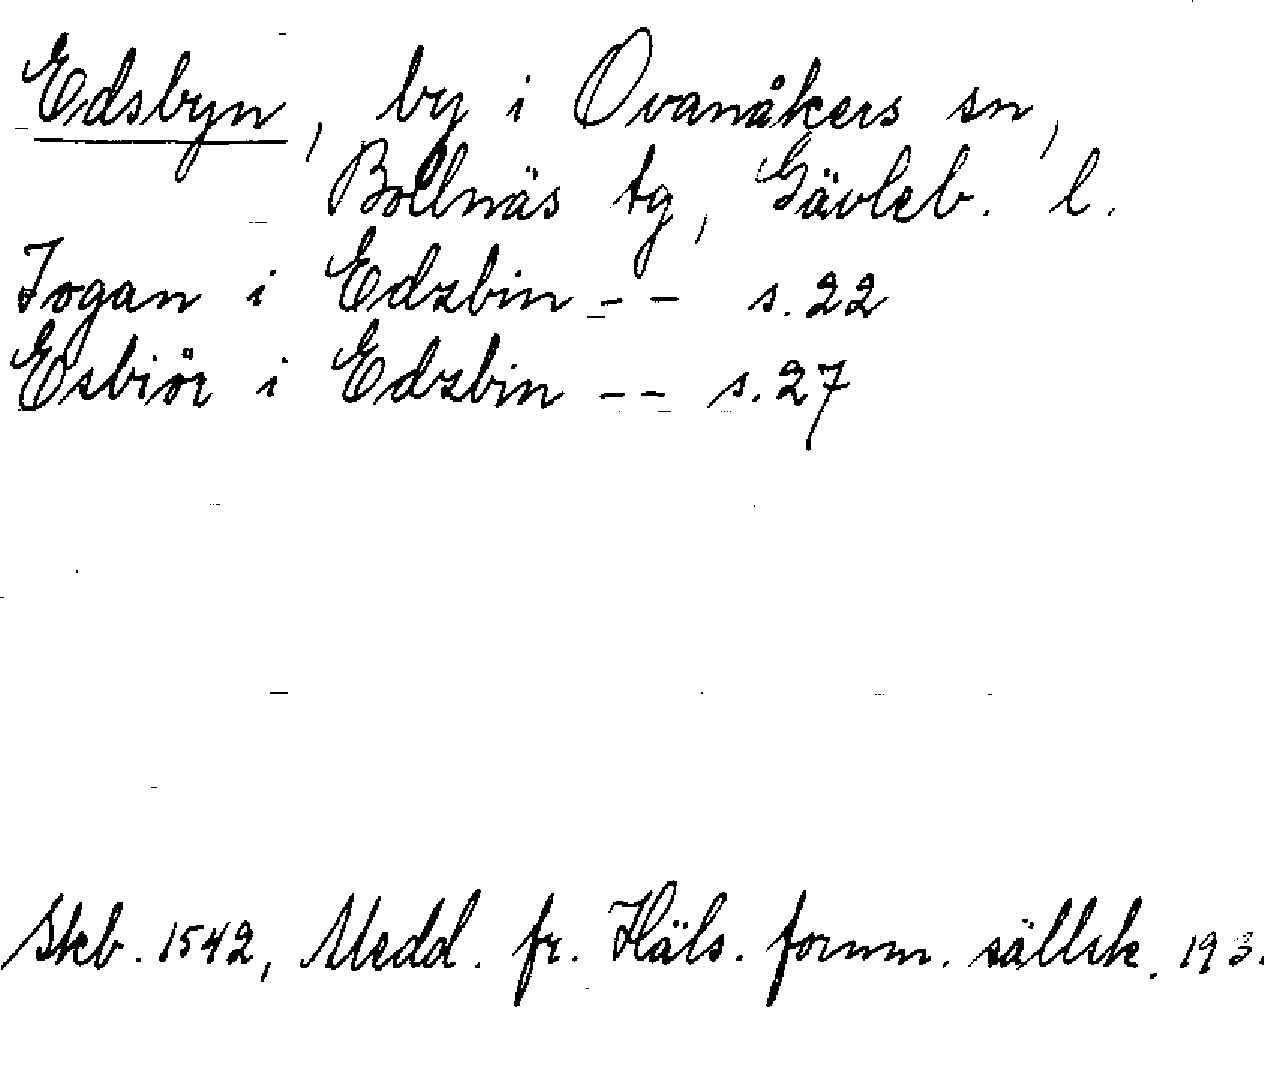 Edsbyn, by i Ovanåkers sn,
Bollnäs tg, Gävleb. l.
Jogan i Edzbin -- s. 22
Esbiör i Edzbin -- s. 27
Skb. 1542, Medd. fr. Häls. fornm. sällsk. 193.